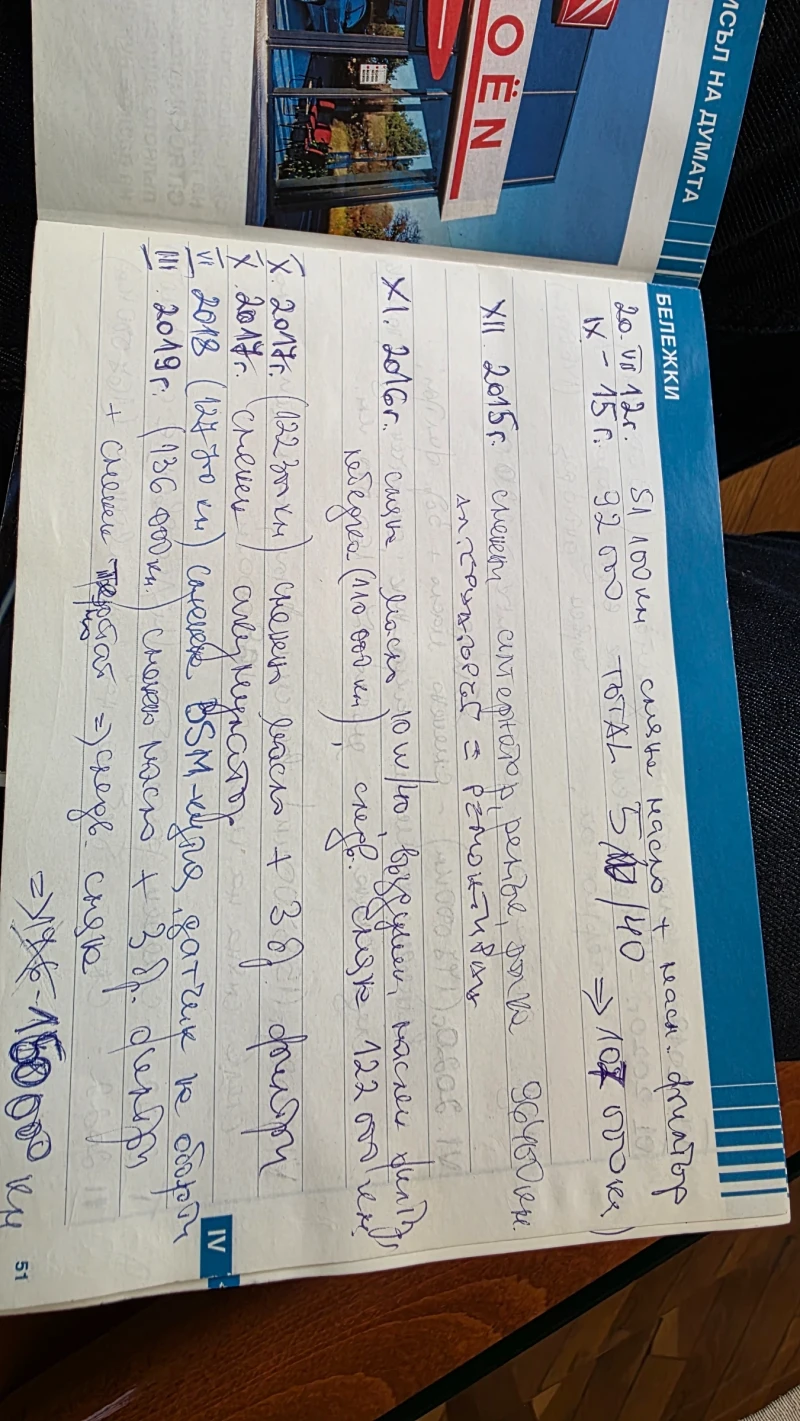 ИСЪЛ НА ДУМАТА
OËN
БЕЛЕЖКИ
20. VII 12г. 51 100 км смяна масло + масл. филтър
IX - 15г. 92 000 TOTAL 5 /40 => 107 000 км)
XII. 2015г. сменен алтернатор, ремък, ролка 96400 км.
алтернаторът = РЕМОНТИРАН
XI. 2016г. смяна масло 10w/40, въздушен, маслен филтър,
(110 000 км), след. смяна 122 000 км
X. 2017г. (122 300 км) сменен масло + 3 бр. филтри
X. 2017г. сменен акумулатор
VI 2018 (127 700 км) сменен BSM-кутия, датчик на обороти
III. 2019г. (136 000 км.) сменен масло + 3 бр. филтри
+ сменен => след. смяна
=> 150 000 км
IV
51